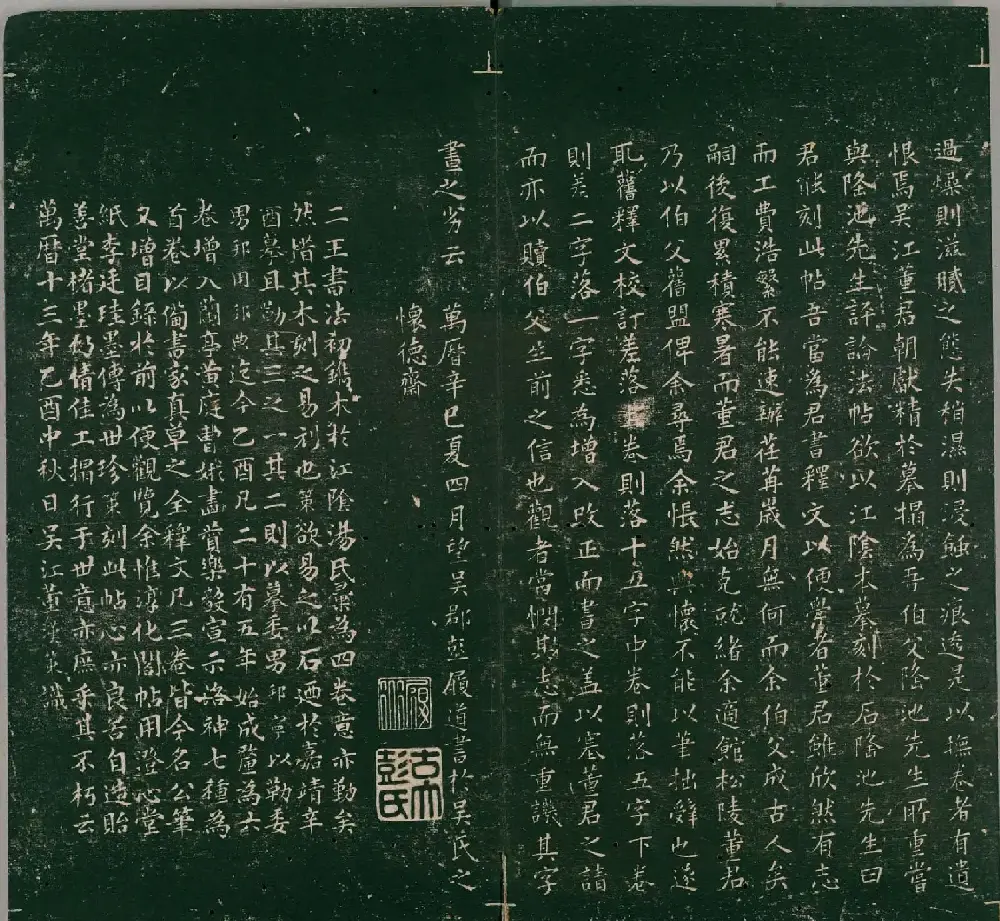 過燥則滋賊之態失稍濕則浸蝕之浪逸是以撫卷者有遺
恨焉吳江董君朝獻精於摹搨為吾伯父隆池先生所重嘗
與隆池先生評論法帖欲以江陰本摹刻於石隆池先生曰
君能刻此帖吾當為君書釋文以便學者董君雖欣然有志
而工費浩繁不能速辦荏苒歲月無何而余伯父成古人矣
嗣後復累積寒暑而董君之志始克就緒余適館松陵董君
乃以伯父舊盟俾余尋焉余悵然興懷不能以筆拙辭也遂
取舊釋文校訂差落上卷則落十五字中卷則落五字下卷
則差二字落一字悉為增入改正而書之蓋以塞董君之請
而亦以贖伯父生前之信也觀者當憫斯志而無重譏其字
畫之劣云 萬曆辛巳夏四月望吳郡彭履道書於吳氏之
懷德齋
二王書法初鐫木於江陰湯氏梁為四卷意亦勤矣
然惜其木刻之易刓也策欲易之以石迺於嘉靖辛
酉摹且勒其三之一其二則以摹委男邦 以勒委
男邦用邦典迄今乙酉凡二十有五年始成釐為六
卷增入蘭亭黃庭曹娥畫贊樂毅宣示洛神七種為
首卷以備書家真草之全釋文凡三卷皆今名公筆
又增目錄於前以便觀覽余惟淳化閣帖用澄心堂
紙李廷珪墨傳為世珍策刻此帖心亦良苦自造貽
善堂楮墨仍倩佳工搨行于世意亦庶乎其不朽云
萬曆十三年乙酉中秋日吳江董 策識
古大彭氏